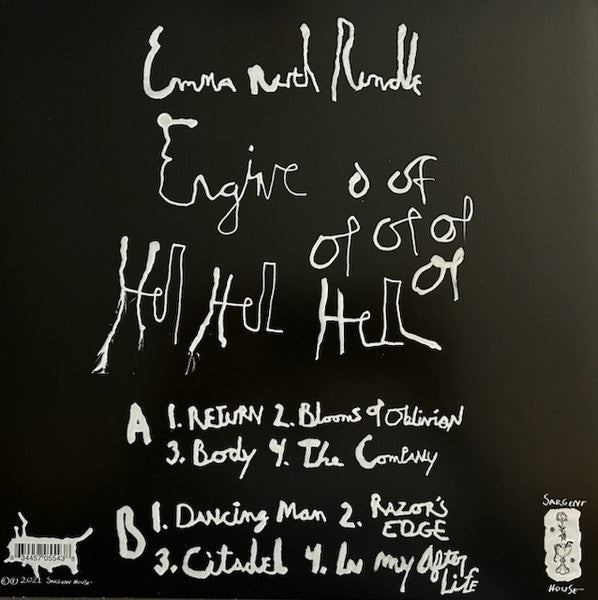 Emma Ruth Rundle
Engine o of
of of of of
Hel Hel Hell
A 1. RETURN 2. Blooms of Oblivion
3. Body 4. The Company
B 1. Dancing Man 2. RAZOR'S EDGE
3. Citadel 4. In my After Life
SARGENT
HOUSE
©℗ 2021 SARGENT HOUSE